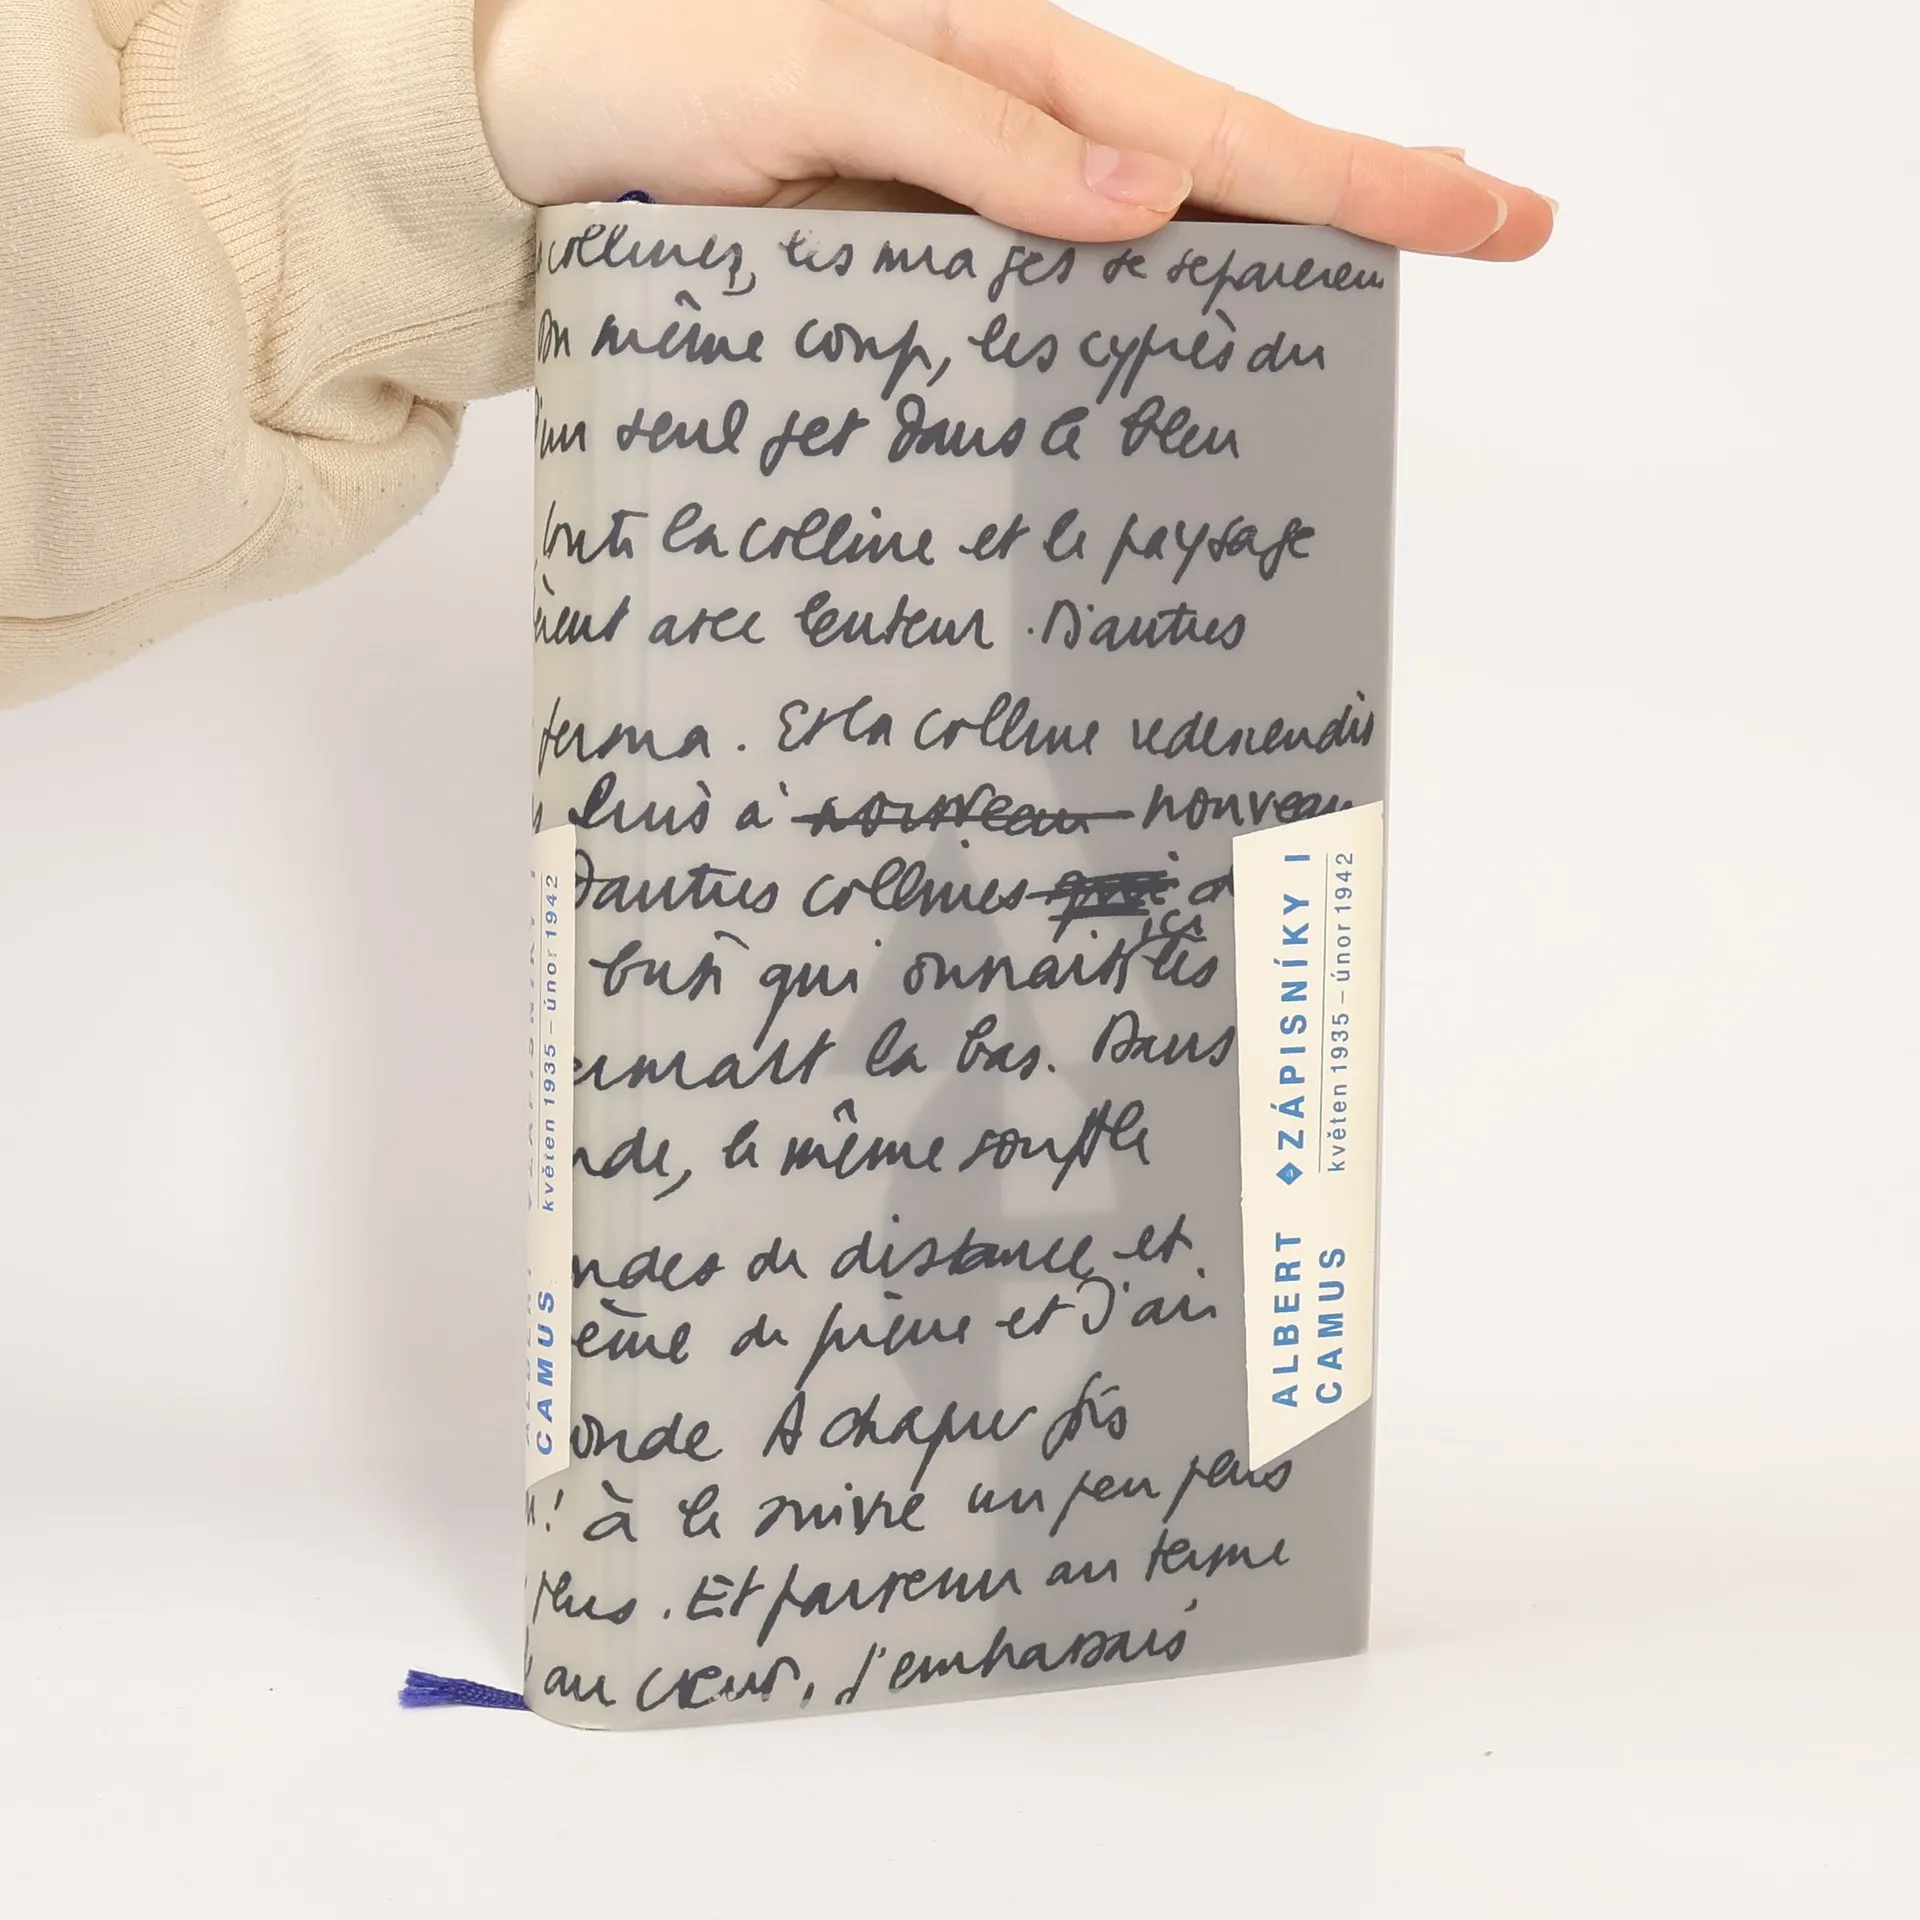 collines, les nuages se separeren
même coup, les cyprès du
d'un seul jet dans le bleu
toute la colline et le paysage
èrent avec lenteur. D'autres
ferma. Et la colline redescendit
à nouveau nouveau
D'autres collines qui
ici
qui ouvrait les
ermait la bas. Dans
nde, le même souffle
ndes de distance et
ême de pierre et J'ai
onde A chaque fois
! à le suivre un peu plus
plus. Et parvenu au terme
au cœur, j'embrassais
ALBERT CAMUS
ZÁPISNÍKY I
květen 1935 – únor 1942
CAMUS
květen 1935 – únor 1942